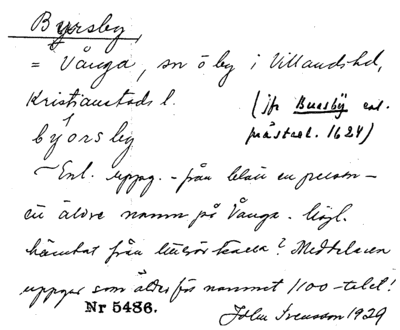 Byorsby,
= Vånga, sn ö by i Villandshd,
Kristianstads l.
(jfr Buesbÿ enl.
prästest. 1624)
byorsby
Enl. uppg. - från blott en person -
ett äldre namn på Vånga. Mögl.
hämtat från litterär källa? Meddelaren
uppger som ålder för namnet 1100-talet!
Nr 5486.
John Svensson 1929